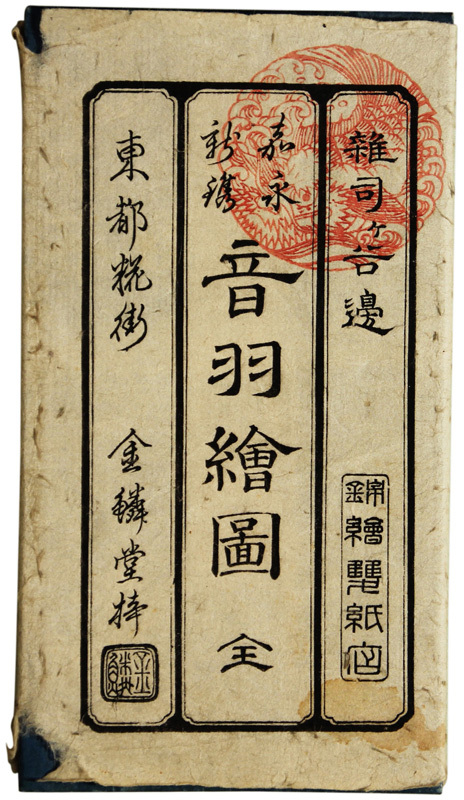 雜司ヶ谷邊
錦繪雙紙店
嘉永
新鐫
音羽繪圖 全
東都糀街 金鱗堂梓